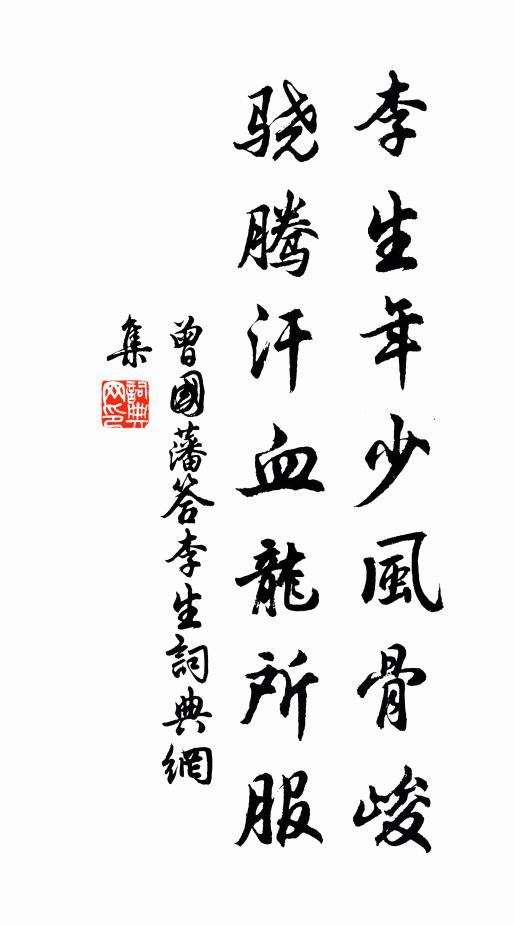 李生年少風骨峻
骁腾汗血龍所服
曾國藩答李生詞典網
集
詞典
网印